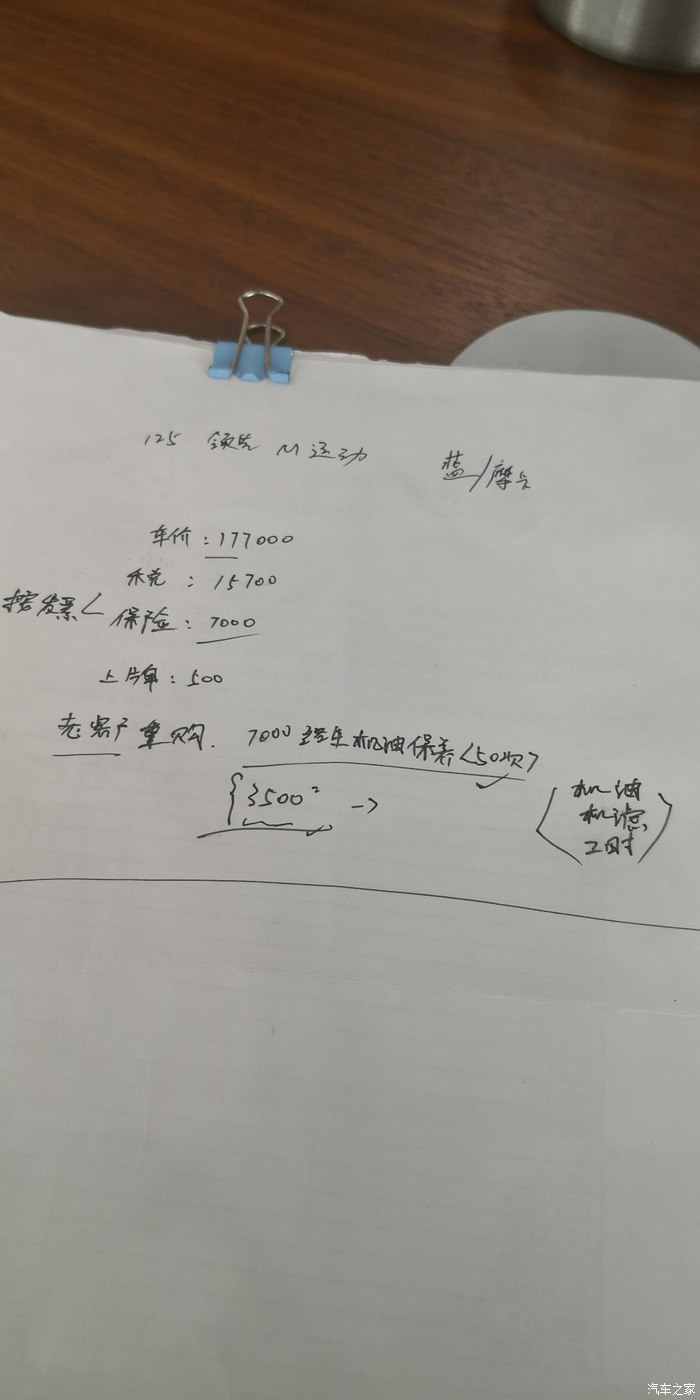 125 领先 M运动 蓝/摩卡
车价：177000
税：15700
按发票< 保险：7000
上牌：500
老客户重购. 7000 终生机油保养<50次>
{3500² →
机油
机滤
工时
汽车之家